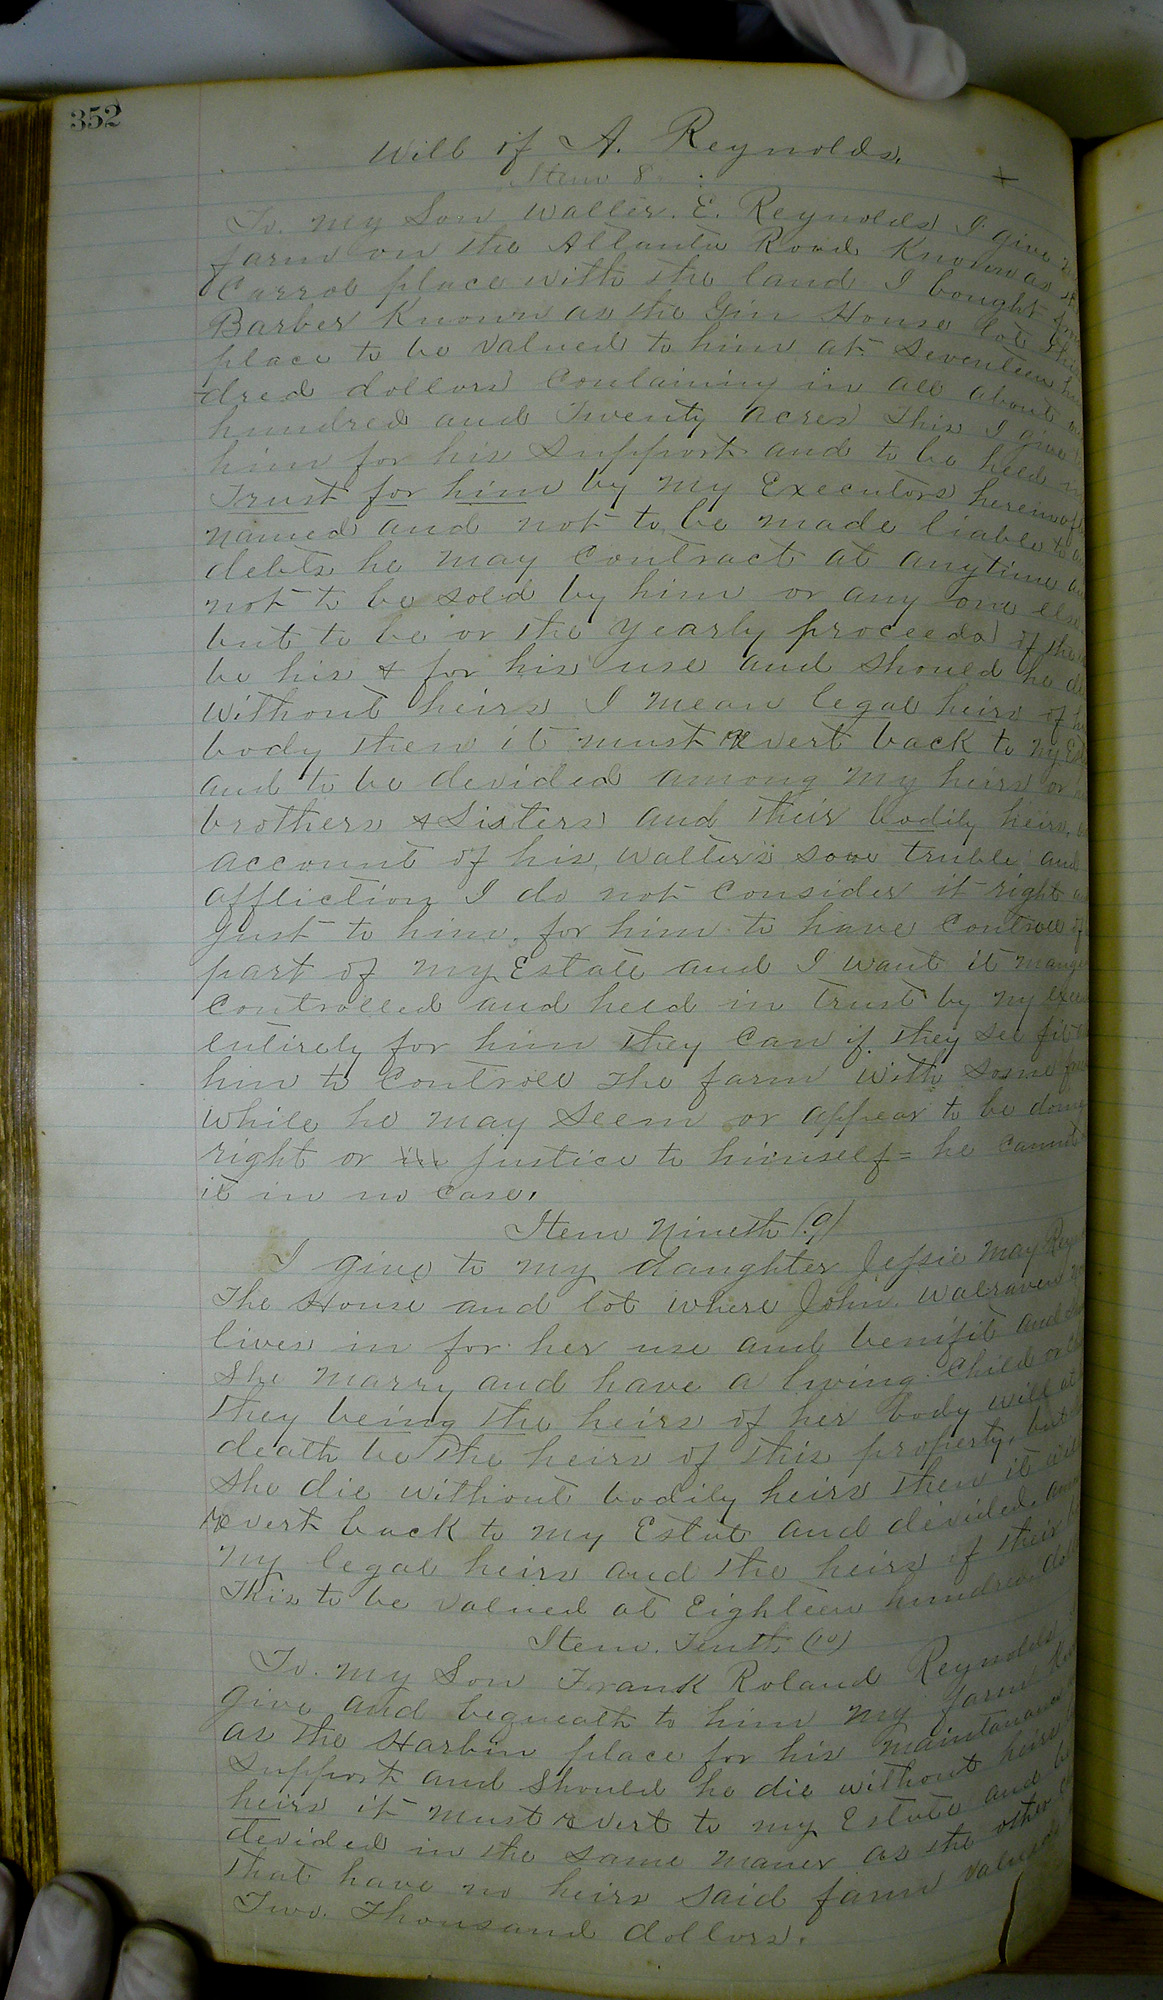 352
Will of A. Reynolds.
Item 8
To. my Son Walter. E. Reynolds I give
farm on the Atlanta Road Known as
Carrol place with the land I bought
Barber Known as the Gin House lot this
place to be valued to him at Seventeen hun
dred dollars containing in all about
hundred and Twenty acres This I give
him for his Support and to be held
Trust for him by my Executors herein
named and not to be made liable to
debts he may contract at anytime
not to be sold by him or any one else
but to be or the yearly proceeds of the
be his & for his use and should he
without heirs I mean legal heirs of
body then it must revert back to my
and to be devided among my heirs or
brothers & Sisters and their bodily heirs,
account of his, Walter's sore truble and
affliction I do not consider it right
just to him, for him to have controll of
part of my Estate and I want it
controlled and held in trust by my
entirely for him they can if they see fit
him to controll the farm with some
while he may seem or appear to be doing
right or justice to himself = he cannot
it in no case.
Item Nineth (9)
I give to my daughter Jessie May
The House and lot where John Walraven
lives in for her use and benifit and
she marry and have a living child or
they being the heirs of her body will at
death be the heirs of this property, but
she die without bodily heirs then it
revert back to my Estate and devided
my legal heirs and the heirs of their
This to be valued at Eighteen hundred
Item. Tenth (10)
To. my Son Frank Roland Reynolds
give and bequeath to him my farm
as the Harbin place for his maintanance
Support and should he die without heirs
heirs it must revert to my Estate and be
devided in the same maner as the other
that have no heirs said farm valued
Two. Thousand dollars.